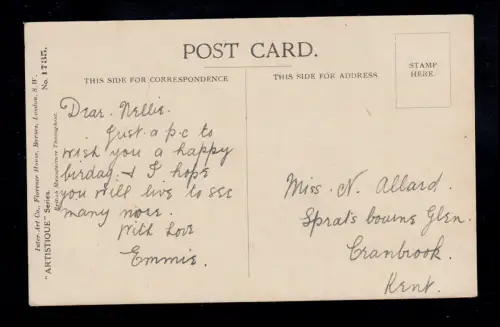 POST CARD.
THIS SIDE FOR CORRESPONDENCE
THIS SIDE FOR ADDRESS.
STAMP
HERE.
Dear Nellie.
Just a p.c to
wish you a happy
birday. & I hope
you will live to see
many more.
With Love
Emmie.
Miss. N. Allard.
Sprats bourne Glen.
Cranbrook.
Kent.
Inter-Art Co., Florence House, Barnes, London, S.W.
"ARTISTIQUE" Series. No. 1737.
British Manufacture Throughout.